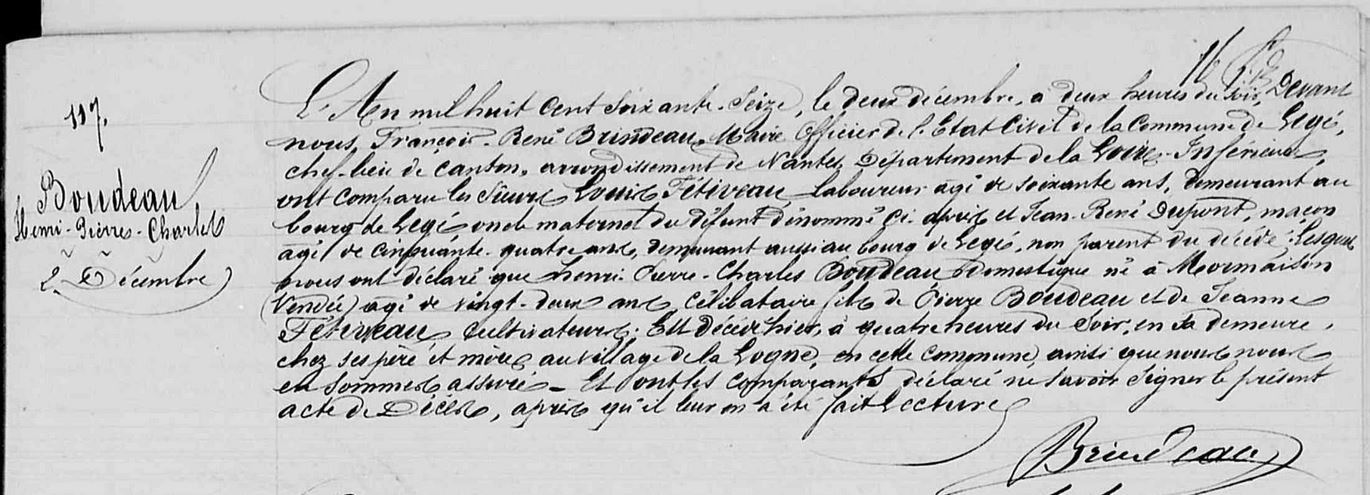 117.
Boudeau
Henri-Pierre-Charles
2 Décembre
L'An mil huit cent soixante-Seize, le deux décembre, à deux heures du soir, Devant
nous, François-René Brindeau, Maire Officier de l'Etat Civil de la Commune de Legé,
chef-lieu de canton, arrondissement de Nantes, Département de la Loire-Inférieure,
ont comparu les Sieurs Louis Fétiveau, laboureur âgé de soixante ans, demeurant au
bourg de Legé oncle maternel du défunt dénommé ci-après et Jean-René Dupont, maçon
âgé de cinquante-quatre ans, demeurant aussi au bourg de Legé, non parent du décédé; Lesquels
nous ont déclaré que Henri-Pierre-Charles Boudeau domestique né à Mormaison
(Vendée) âgé de vingt-deux ans célibataire fils de Pierre Boudeau et de Jeanne
Fétiveau cultivateurs; Est décédé hier, à quatre heures du Soir, en sa demeure,
chez ses père et mère au village de la Logne, en cette commune, ainsi que nous nous
en sommes assuré _ Et ont les comparants déclaré ne savoir signer le présent
acte de Décès, après qu'il leur en a été fait lecture
Brindeau